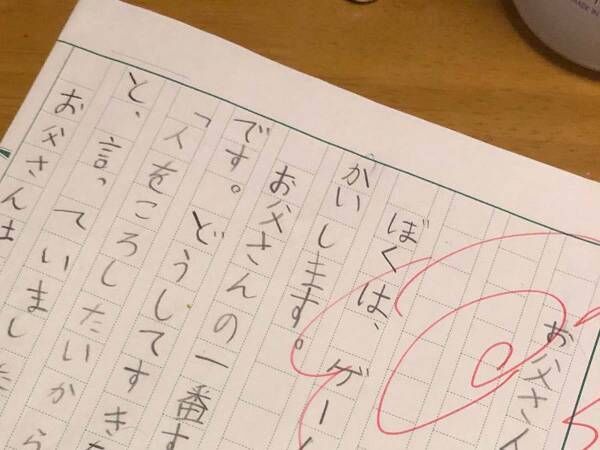 お父さん
ぼくは、ゲー
かいします。
お父さんの一番す
です。どうしてすき
「人をころしたいから
と、言っていました
お父さんは